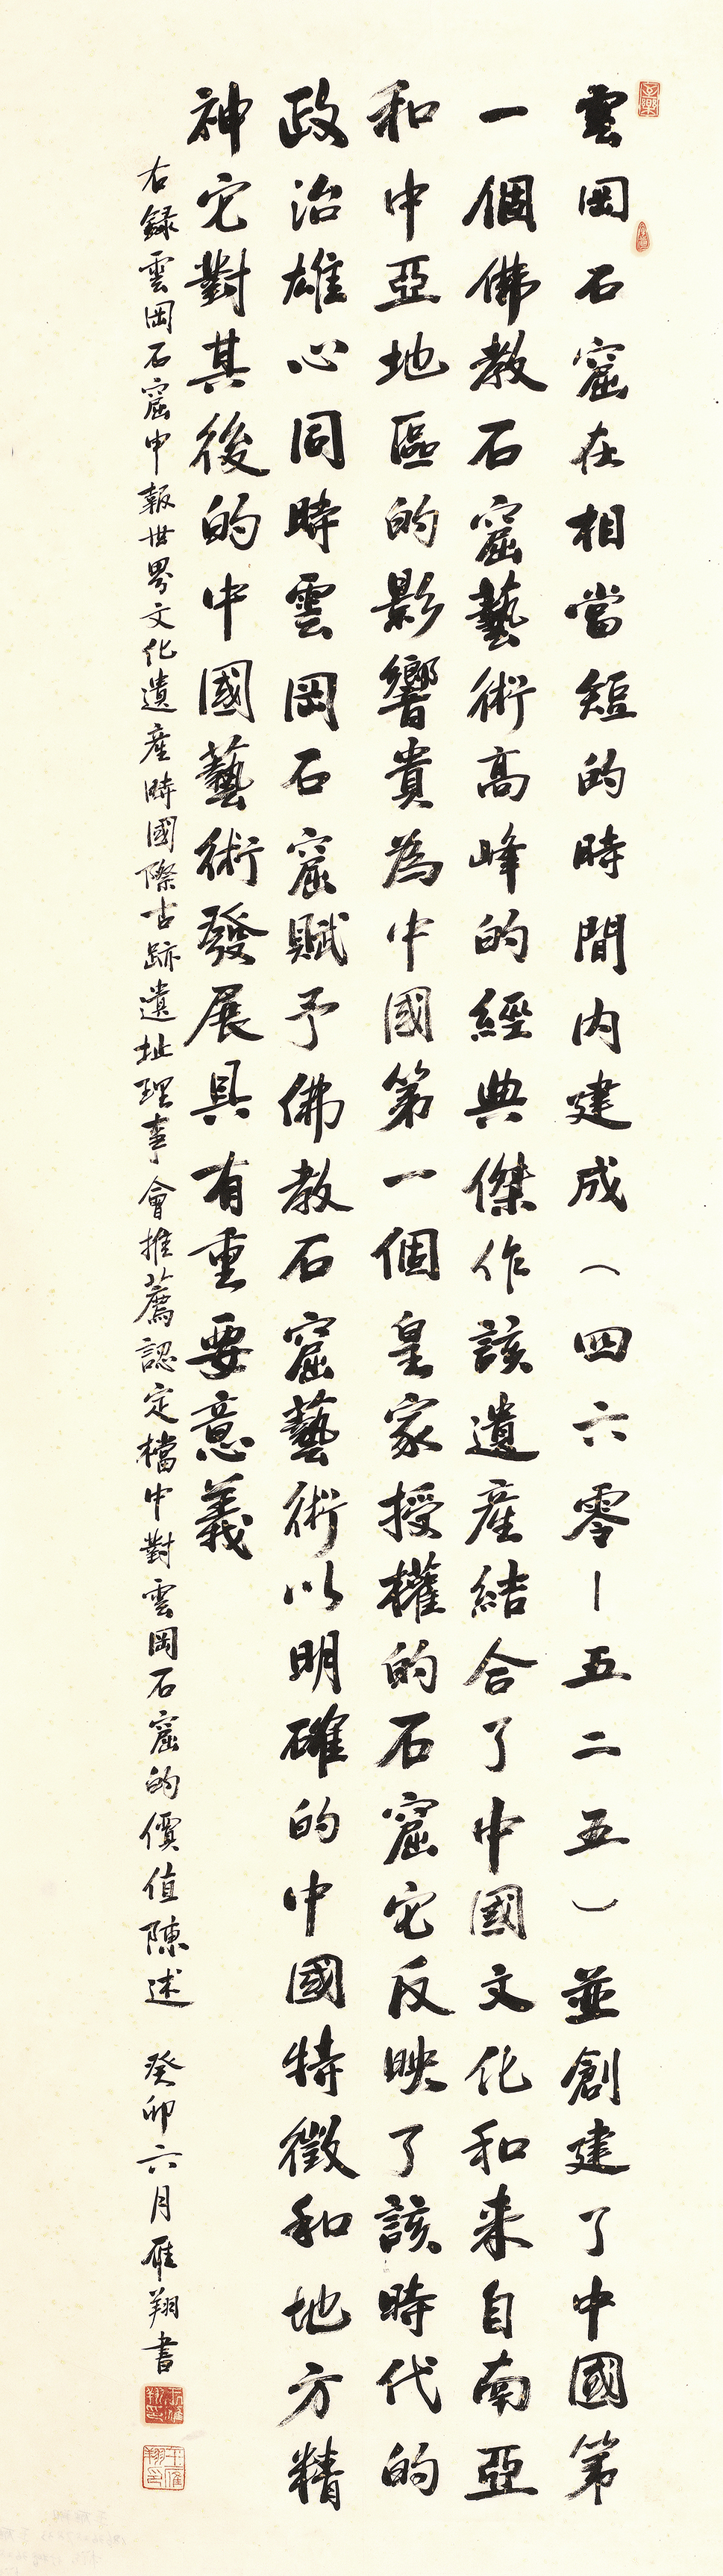 雲岡石窟在相當短的時間内建成（四六零—五二五）並創建了中國第
一個佛教石窟藝術高峰的經典傑作該遺産結合了中國文化和来自南亞
和中亞地區的影響貴為中國第一個皇家授權的石窟它反映了該時代的
政治雄心同時雲岡石窟賦予佛教石窟藝術以明確的中國特徵和地方精
神它對其後的中國藝術發展具有重要意義
右録雲岡石窟申報世界文化遺産時國際古跡遺址理事會推薦認定檔中對雲岡石窟的價值陳述 癸卯六月雁翔書